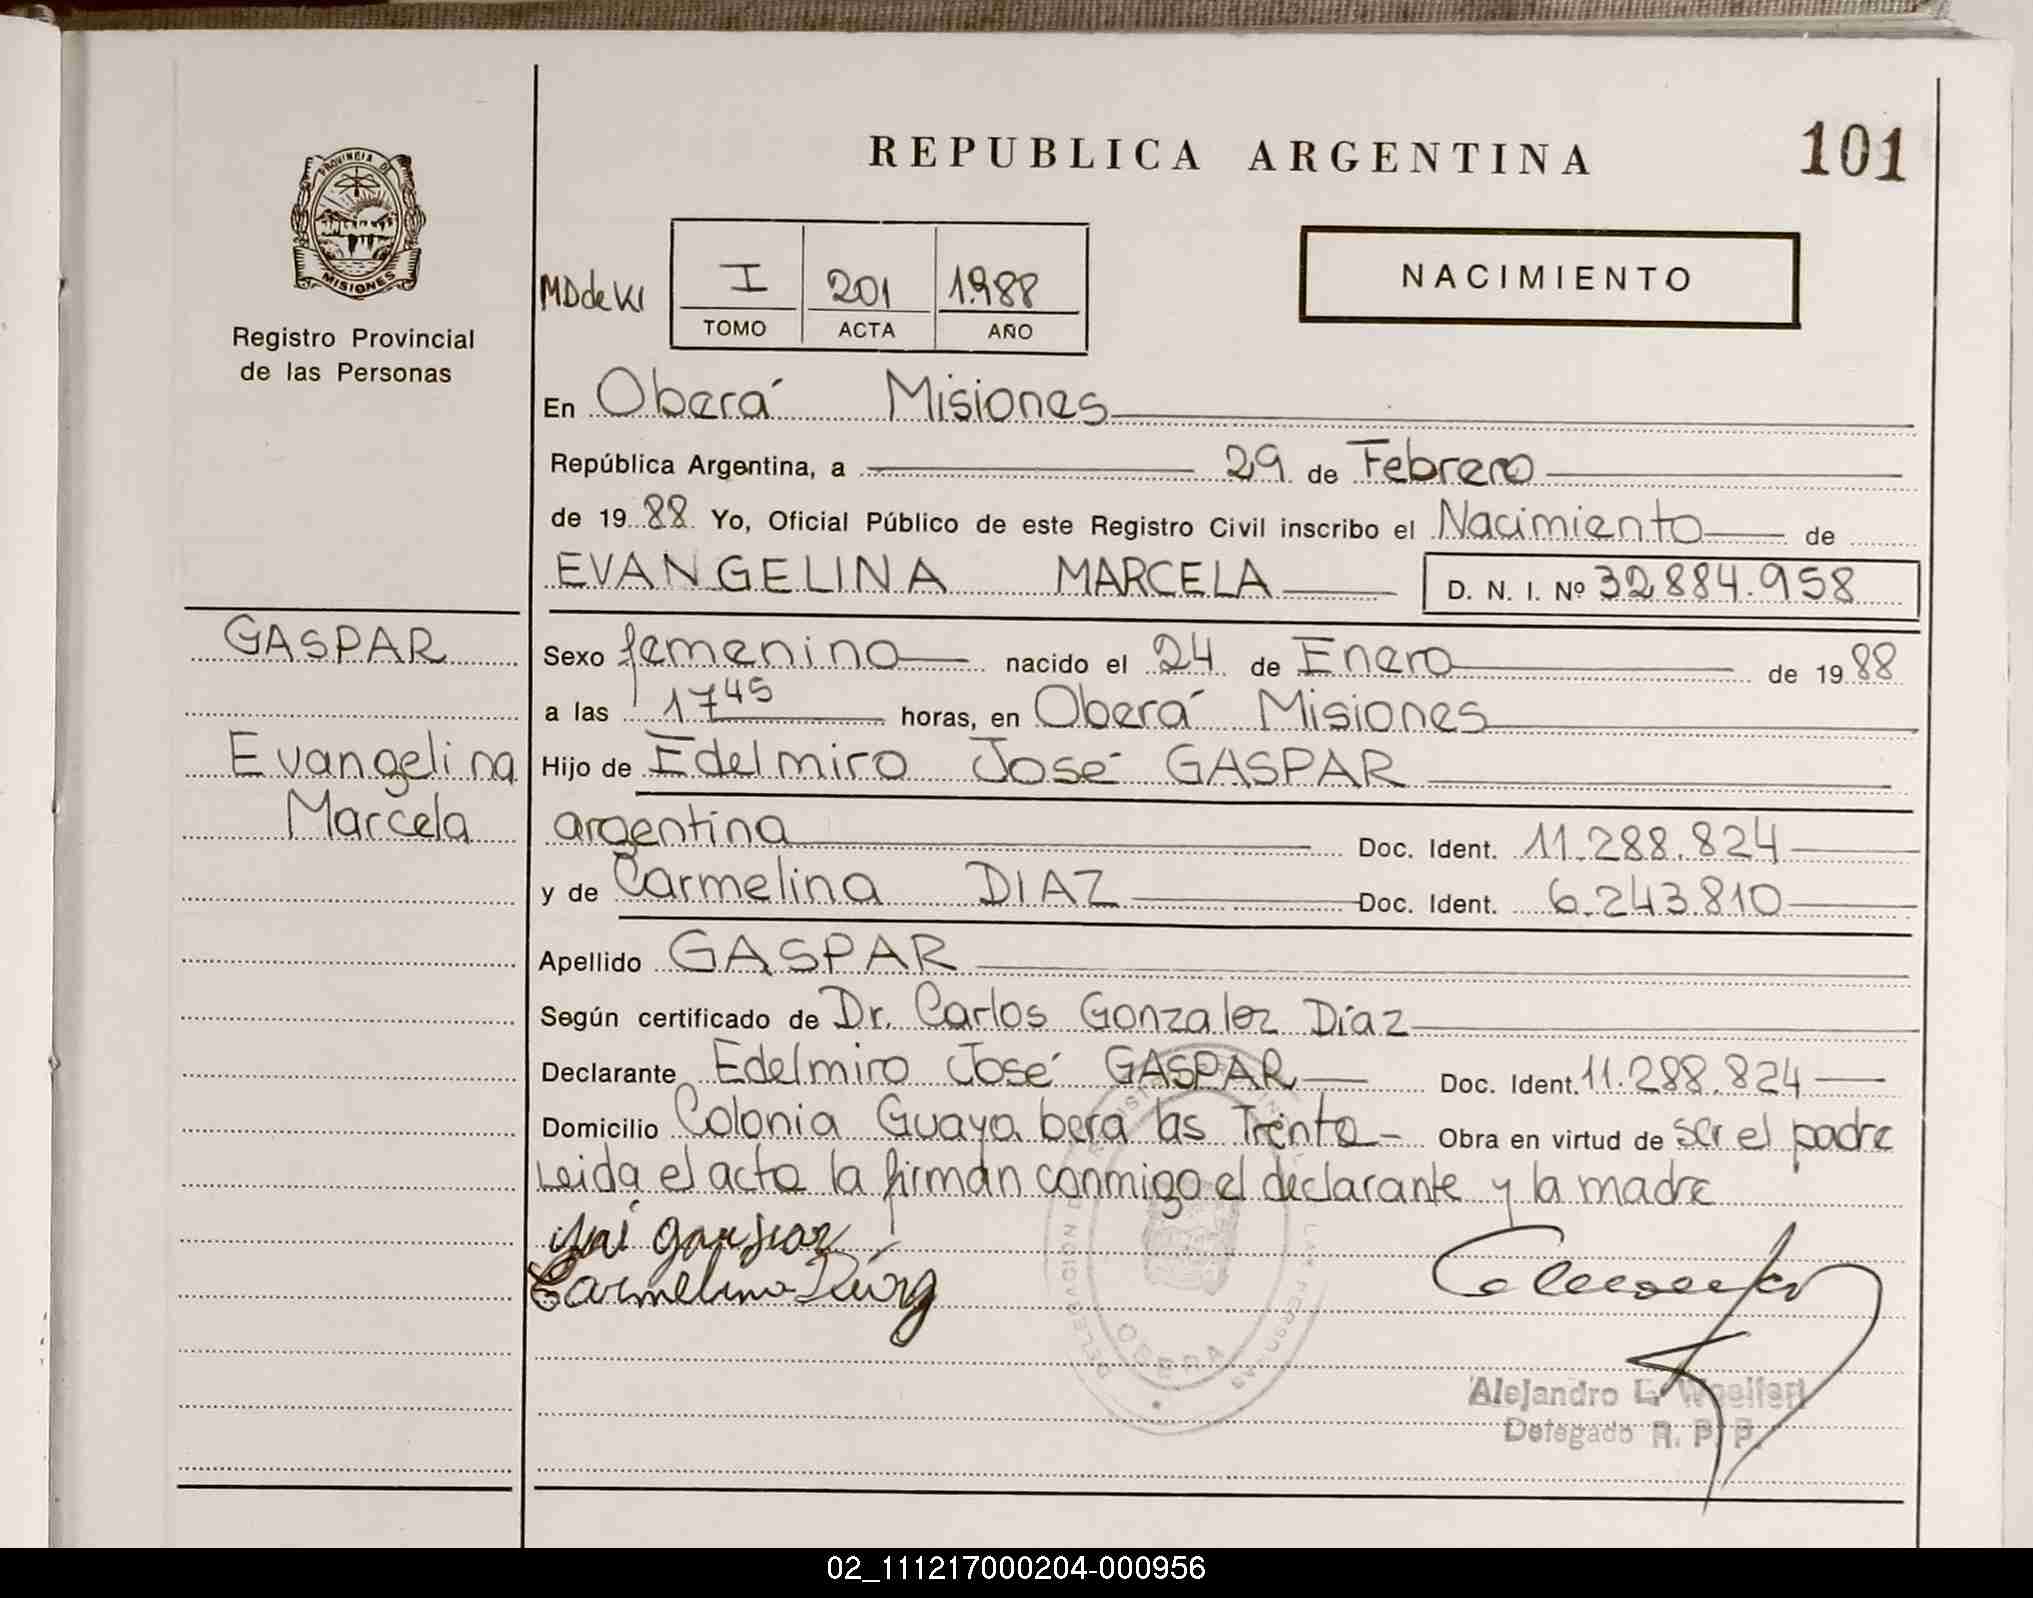 REPUBLICA ARGENTINA
101
PROVINCIA DE
MISIONES
Registro Provincial
de las Personas
NACIMIENTO
I 201 1.988
TOMO ACTA AÑO
En Oberá Misiones
República Argentina, a 29 de Febrero
de 1988 Yo, Oficial Público de este Registro Civil inscribo el Nacimiento de
EVANGELINA MARCELA D. N. I. Nº 32.884.958
GASPAR
Evangelina
Marcela
Sexo femenino nacido el 24 de Enero de 1988
a las 17 45 horas, en Oberá Misiones
Hijo de Edelmiro José GASPAR
argentina Doc. Ident. 11.288.824
y de Carmelina DIAZ Doc. Ident. 6.243.810
Apellido GASPAR
Según certificado de Dr. Carlos Gonzalez Díaz
Declarante Edelmiro José GASPAR Doc. Ident. 11.288.824
Domicilio Colonia Guayabera las Trenta - Obra en virtud de ser el padre
Leida el acta la firman conmigo el declarante y la madre
OBERA
Alejandro
Delegado R. P. P.
02_111217000204-000956